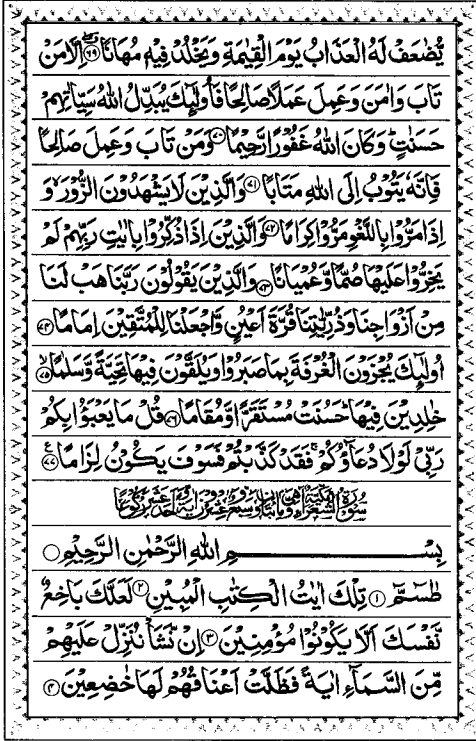 يُّضٰعَفۡ لَهُ الۡعَذَابُ يَوۡمَ الۡقِيٰمَةِ وَيَخۡلُدۡ فِيۡهٖ مُهَانًا ۖ‏﴿۶۹﴾ اِلَّا مَنۡ
تَابَ وَاٰمَنَ وَعَمِلَ عَمَلًا صَالِحًـا فَاُولٰٓٮِٕكَ يُبَدِّلُ اللّٰهُ سَيِّاٰتِهِمۡ
حَسَنٰتٍ ؕ وَكَانَ اللّٰهُ غَفُوۡرًا رَّحِيۡمًا‏﴿۷۰﴾ وَمَنۡ تَابَ وَعَمِلَ صَالِحًـا
فَاِنَّهٗ يَتُوۡبُ اِلَى اللّٰهِ مَتَابًا‏﴿۷۱﴾ وَالَّذِيۡنَ لَا يَشۡهَدُوۡنَ الزُّوۡرَۙ وَ
اِذَا مَرُّوۡا بِاللَّغۡوِ مَرُّوۡا كِرَامًا‏﴿۷۲﴾ وَالَّذِيۡنَ اِذَا ذُكِّرُوۡا بِاٰيٰتِ رَبِّهِمۡ لَمۡ
يَخِرُّوۡا عَلَيۡهَا صُمًّا وَّعُمۡيَانًا‏﴿۷۳﴾ وَالَّذِيۡنَ يَقُوۡلُوۡنَ رَبَّنَا هَبۡ لَـنَا
مِنۡ اَزۡوَاجِنَا وَذُرِّيّٰتِنَا قُرَّةَ اَعۡيُنٍ وَّاجۡعَلۡنَا لِلۡمُتَّقِيۡنَ اِمَامًا‏﴿۷۴﴾
اُولٰٓٮِٕكَ يُجۡزَوۡنَ الۡغُرۡفَةَ بِمَا صَبَرُوۡا وَيُلَقَّوۡنَ فِيۡهَا تَحِيَّةً وَّسَلٰمًا ۙ‏﴿۷۵﴾
خٰلِدِيۡنَ فِيۡهَا ؕ حَسُنَتۡ مُسۡتَقَرًّا وَّمُقَامًا‏﴿۷۶﴾ قُلۡ مَا يَعۡبَـؤُا بِكُمۡ
رَبِّىۡ لَوۡلَا دُعَآؤُكُمۡ‌ۚ فَقَدۡ كَذَّبۡتُمۡ فَسَوۡفَ يَكُوۡنُ لِزَامًا‏﴿۷۷﴾
سُوۡرَةُ الشُّعَرَآءِ مَكِّيَّةٌ وَّهِىَ مِائَتَانِ وَسَبۡعٌ وَّعِشۡرُوۡنَ اٰيَةً وَّاَحَدَ عَشَرَ رُكُوۡعًا
بِسۡمِ اللّٰهِ الرَّحۡمٰنِ الرَّحِيۡمِ
طٰسٓمّٓ‏﴿۱﴾ تِلۡكَ اٰيٰتُ الۡكِتٰبِ الۡمُبِيۡنِ‏﴿۲﴾ لَعَلَّكَ بَاخِعٌ
نَّفۡسَكَ اَلَّا يَكُوۡنُوۡا مُؤۡمِنِيۡنَ‏﴿۳﴾ اِنۡ نَّشَاۡ نُنَزِّلۡ عَلَيۡهِمۡ
مِّنَ السَّمَآءِ اٰيَةً فَظَلَّتۡ اَعۡنَاقُهُمۡ لَهَا خٰضِعِيۡنَ‏﴿۴﴾